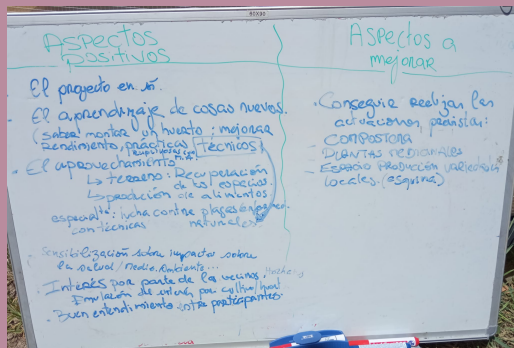 60x90
ASPECTOS
POSITIVOS
· El proyecto en sí.
· El aprendizaje de cosas nuevas.
(saber montar un huerto: mejorar
rendimiento, prácticas (técnicos)
· El aprovechamiento
↳ terreno: Recuperación
de los espacios.
↳ producción de alimentos
especialte: lucha contra plagas
con técnicas naturales.
· Sensibilización sobre impactos sobre
la salud/medio. Ambiente...
· Interés por parte de los vecinos.
Emulación de interés por cultivo/
· Buen entendimiento entre participantes.
ASPECTOS A
MEJORAR
· Conseguir realizar las
actuaciones previstas:
- COMPOSTERA
- PLANTAS MEDICINALES
- ESPACIO PRODUCCIÓN VARIEDADES
LOCALES. (esquina)